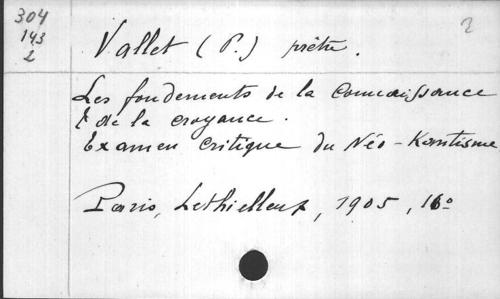 304
143
2
2
Vallet (P.) prêtre.
Les fondements de la Connaissance
& de la croyance.
Examen critique du Néo-Kantisme
Paris, Lethielleux, 1905, 16°